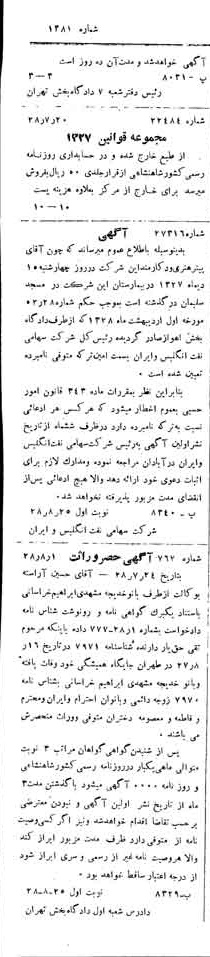 شماره ۱۳۸۱
آگهی خواهد شد و مدت آن ده روز است
پ - ۸۰۳۱ ۳ - ۳
رئیس دفتر شعبه ۷ دادگاه بخش تهران
شماره ۲۲۴۸۴ ۲۰ر۷ر۲۸
مجموعه قوانین ۱۳۲۷
از طبع خارج شده و در حسابداری روزنامه
رسمی کشور شاهنشاهی از قرار جلدی ۵۰ ریال بفروش
میرسد برای خارج از مرکز بعلاوه هزینه پست
۱۰ - ۱۰
شماره ۲۷۳۱۶ آگهی
بدینوسیله باطلاع عموم میرساند که چون آقای
پیتر هنری و دکار مند این شرکت در روز چهارشنبه ۱۵
دیماه ۱۳۲۷ در بیمارستان این شرکت در مسجد
سلیمان درگذشته است بموجب حکم شماره ۲۸ر۵۲
مورخه اول اردیبهشت ماه ۱۳۲۸ که از طرف دادگاه
بخش اهواز صادر گردیده رئیس کل شرکت سهامی
نفت انگلیس و ایران بسمت امین ترکه متوفی نامبرده
تعیین شده است .
بنابراین نظر بمقررات ماده ۳۴۳ قانون امور
حسبی بعموم اخطار میشود که هر کس هر ادعائی
نسبت به ترکه نامبرده دارد در ظرف شش ماه از تاریخ
نشر اولین آگهی به رئیس شرکت سهامی نفت انگلیس
و ایران در آبادان مراجعه نموده و مدارک لازم برای
اثبات دعوی خود ارائه دهد والا هیچ ادعائی پس از
انقضای مدت مزبور پذیرفته نخواهد شد.
پ - ۸۳۴۰ نوبت اول ۲۵ر۸ر۲۸
شرکت سهامی نفت انگلیس و ایران
شماره ۷۶۲ آگهی حصر وراثت ۱ر۸ر۲۸
بتاریخ ۲۴ر۷ر۲۸ - آقای حسین آراسته
بوکالت از طرف بانو خدیجه مشهدی ابراهیم خراسانی
باستناد یکبرگ گواهی نامه و رونوشت شناس نامه
دادخواست بشماره ۱ر۲۸-۷۷۷ داده باینکه مرحوم
تقی حق یار دارنده شناسنامه ۷۹۷۱ در تاریخ ۱۶ر
۸ر۲۷ در طهران جایگاه همیشگی خود وفات یافته
و بانو خدیجه مشهدی ابراهیم خراسانی بشناس نامه
۷۹۷۰ زوجه دائمی و بانوان احترام و ایران و محترم
و فاطمه و معصومه دختران متوفی و وراث منحصرش
می باشند .
پس از شنیدن گواهی گواهان مراتب ۳ نوبت
متوالی ماهی یکبار در روزنامه رسمی کشور شاهنشاهی
و روزنامه ۰۰۰۰ آگهی میشود با گذشتن مدت ۳
ماه از تاریخ نشر اولین آگهی و نبودن معترضی
برحسب تقاضا اقدام خواهد شد و نیز اگر کسی وصیت
نامه از متوفی دارد ظرف مدت مزبور ابراز کند
والا هر وصیت نامه غیر از رسمی و سری ابراز شود
از درجه اعتبار ساقط خواهد بود .
پ - ۸۳۲۹ نوبت اول ۲۵-۸-۲۸
دادرس شعبه اول دادگاه بخش تهران